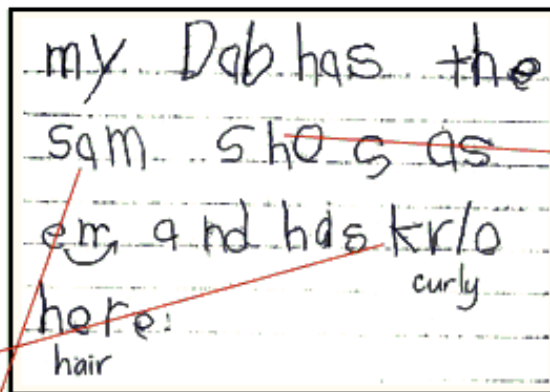 my Dab has the
sam shos as
em and has krlo
curly
here.
hair